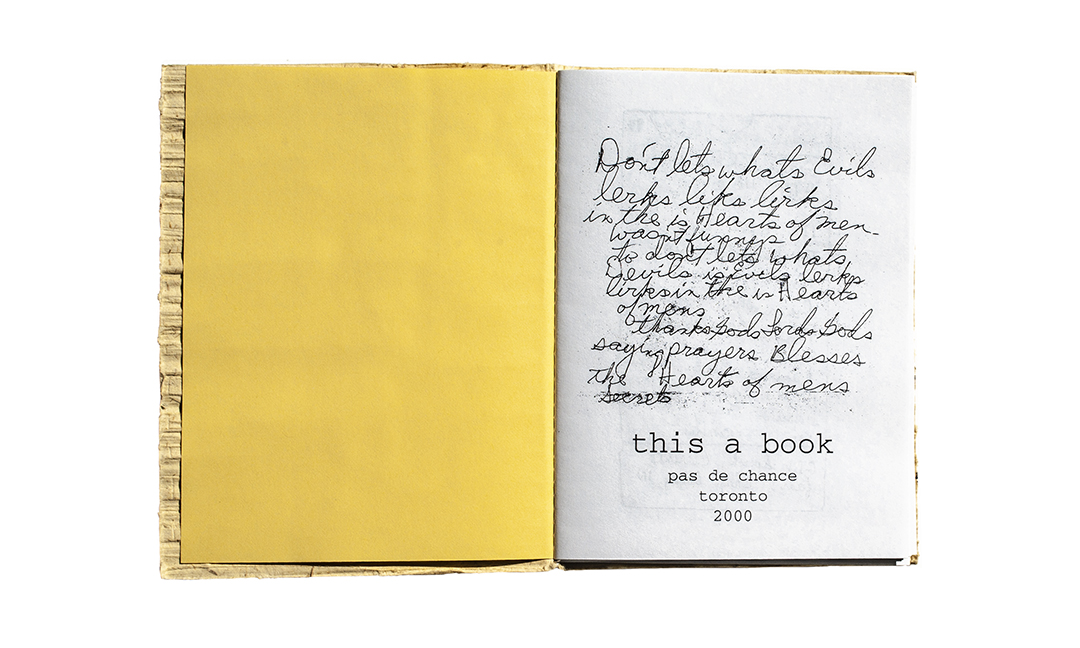 Don't lets whats Evils
lerks liks lirks
in the is Hearts of men-
wasn't funnys
to don't lets whats
Devils is Evils lerks
lirks in the is Hearts
of mens
thanks Gods Lords Gods
saying prayers Blesses
the Hearts of mens
secrets
this a book
pas de chance
toronto
2000